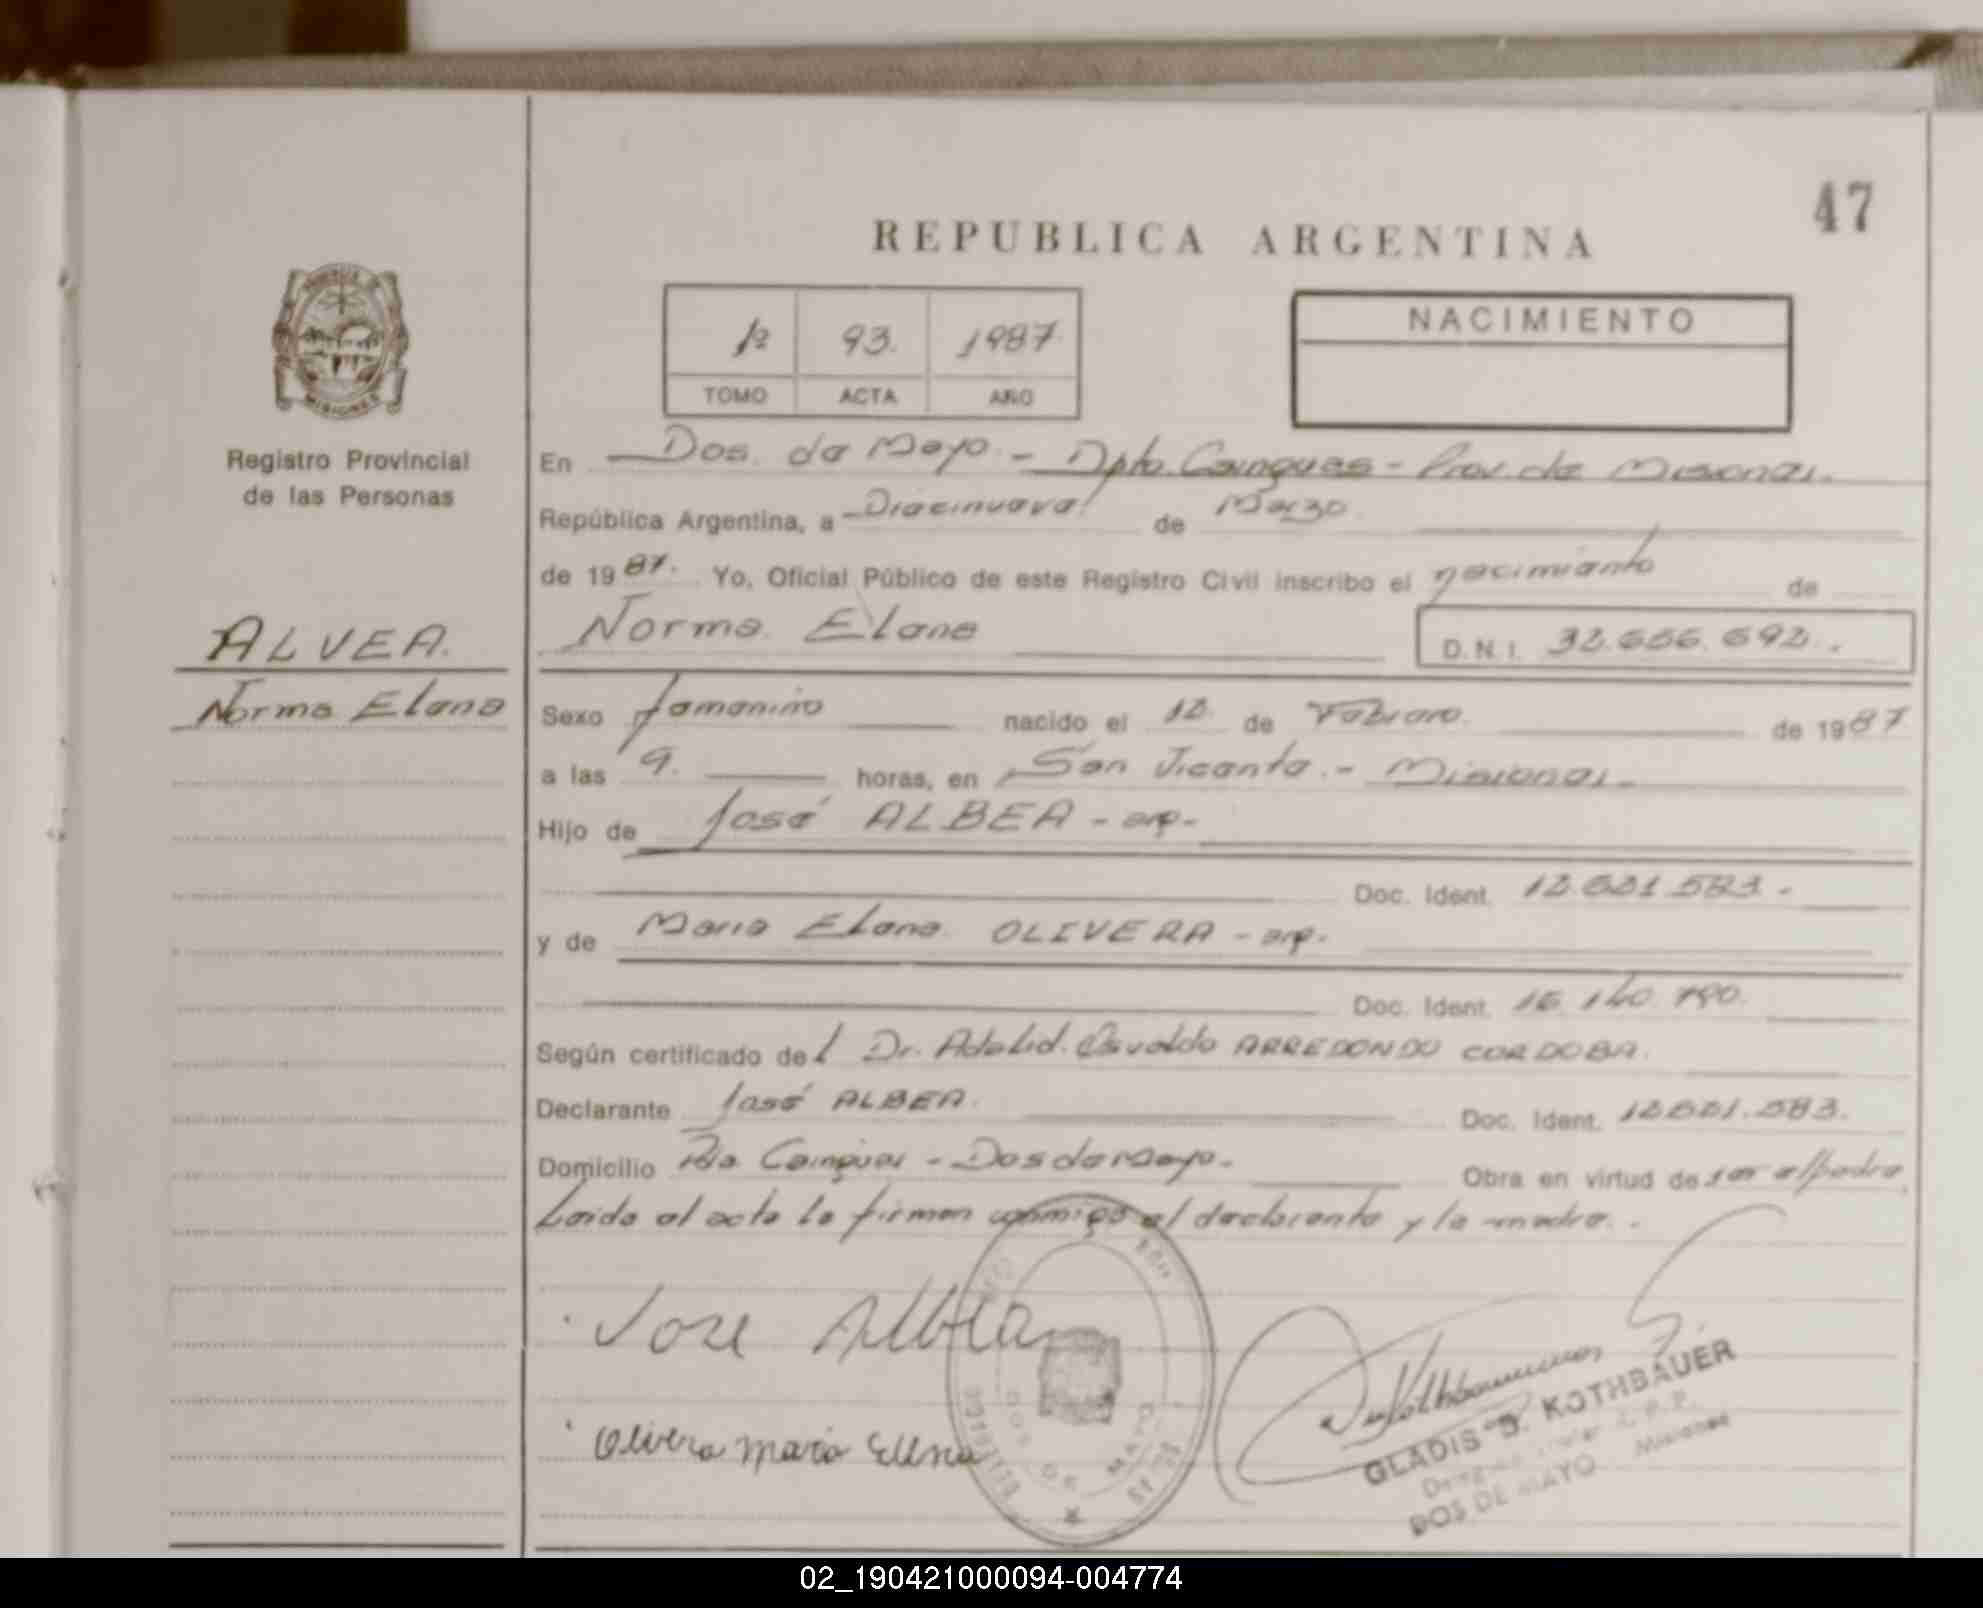 47
REPUBLICA ARGENTINA
1º 93. 1987
TOMO ACTA AÑO
NACIMIENTO
MISIONES
Registro Provincial
de las Personas
En Dos de Mayo.- Dpto. Cainguas - Prov. de Misiones.
República Argentina, a Diecinueve de Marzo
de 1987. Yo, Oficial Público de este Registro Civil inscribo el nacimiento de
ALVEA.
Norma Elena
Norma Elena D.N.I. 32.656.692.
Sexo femenino nacido el 12 de Febrero de 1987
a las 9. horas, en San Vicente.- Misiones.-
Hijo de José ALBEA - arg-
Doc. Ident. 12.621.583.-
y de Maria Elena OLIVERA - arg.
Doc. Ident. 16.140.790.
Según certificado del Dr. Adelid. Osvaldo ARREDONDO CORDOBA.
Declarante José ALBEA. Doc. Ident. 12.621.583.
Domicilio Pdo. Cainguas - Dos de Mayo.- Obra en virtud de ser el padre
Leida el acta la firman conmigo el declarante y la madre.
Jose Albea
Olivera Maria Elena
DOS DE MAYO
GLADIS B. KOTHBAUER
DOS DE MAYO Misiones
02_190421000094-004774